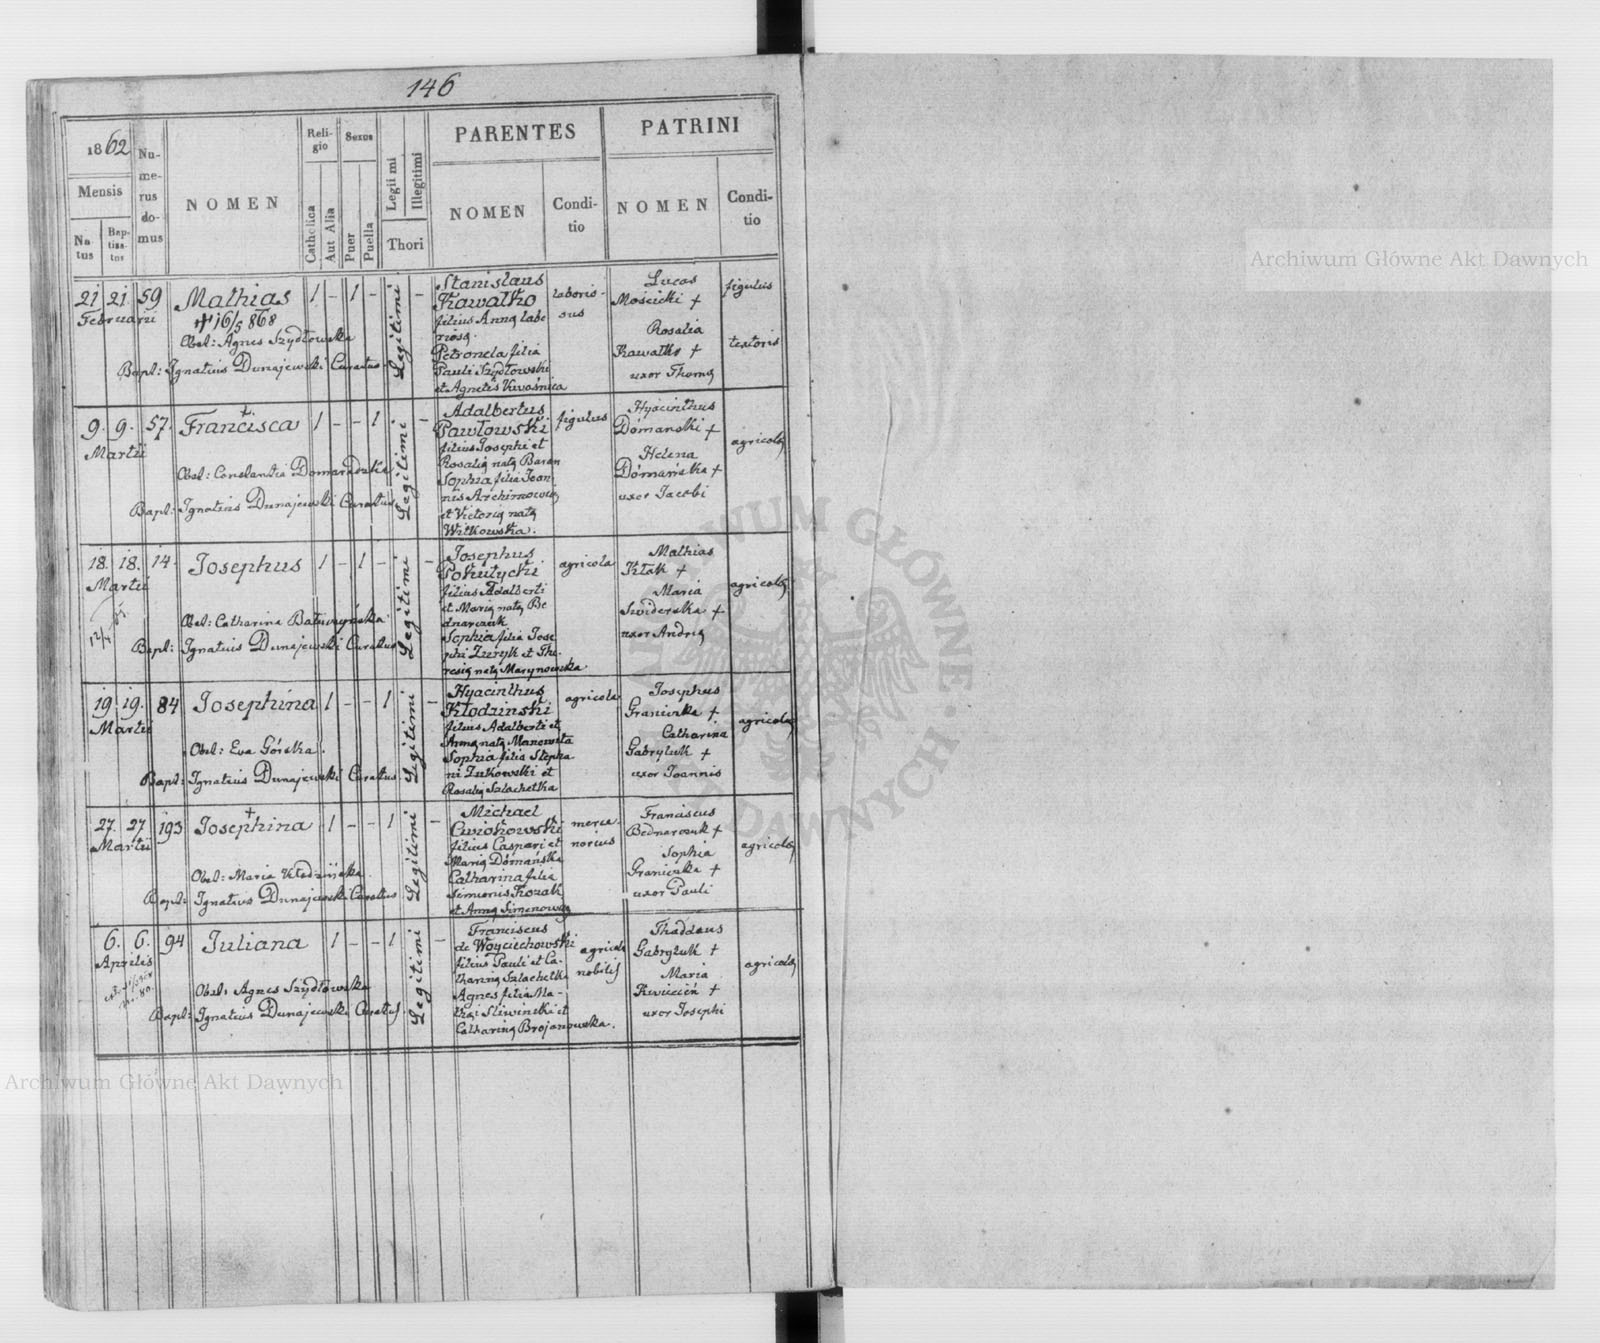 146
1862
Mensis
Na-
tus
Bap-
tisa-
tus
Nu-
me-
rus
do-
mus
NOMEN
Reli-
gio
Catholica
Aut Alia
Sexus
Puer
Puella
Legitimi
Illegitimi
Thori
PARENTES
NOMEN
Condi-
tio
PATRINI
NOMEN
Condi-
tio
21 21 59 Mathias 1 - 1 - Legitimi -
Februarii
+ 16/5 868
Obst: Agnes Szydłowska
Bapt: Ignatius Dunajewski Curatus
Stanislaus
Kawałko
filius Annę labo
riosę.
Petronela filia
Pauli Szydłowski
et Agnetis Kwaśnica
laborio-
sus
Lucas
Mościcki +
Rosalia
Kawałko +
uxor Thomę
figulus
textoris
9. 9. 57. Francisca 1 - - 1 Legitimi -
Martii
Obst: Constantia Domaradzka
Bapt: Ignatius Dunajewski Curatus
Adalbertus
Pawłowski
filius Josephi et
Rosalię natę Baran
Sophia filia Joan
nis Archimowicz
et Victorię natę
Witkowska.
figulus
Hyacinthus
Dómanski +
Helena
Dómańska +
uxor Jacobi
agricolę
18. 18. 14. Josephus 1 - 1 - Legitimi -
Martii
Obst: Catharina
Bapt: Ignatius Dunajewski Curatus
Josephus
Pokutycki
filius Adalberti
et Marię natę Be
dnarczuk
Sophia filia Jose
phi Zuryk et The-
resię natę Marynowska
agricola
Mathias
Kłak +
Maria
Szwiderska +
uxor Andreę
agricolę
19. 19. 84 Josephina 1 - - 1 Legitimi -
Martii
Obst: Eva Górska.
Bapt: Ignatius Dunajewski Curatus
Hyacinthus
Kłodzinski
filius Adalberti et
Annę natę Manowita
Sophia filia Stepha
ni Zukowski et
Rosalię Szlachetka
agricola
Josephus
Graniczka +
Catharina
Gabryluk +
uxor Joannis
agricolę
27. 27 193 Josephina 1 - - 1 Legitimi -
Martii
Obst: Maria Kłodzińska.
Bapt: Ignatius Dunajewski Curatus
Michael
Cwiokowski
filius Caspari et
Marię Dómańska
Catharina filia
Simionis Kozak
et Annę Simenowę
merce-
narius
Franciscus
Bednarczuk +
Sophia
Graniczka +
uxor Pauli
agricolę
6. 6. 94 Juliana 1 - - 1 Legitimi -
Aprilis
Obst: Agnes Szydłowska
Bapt: Ignatius Dunajewski Curatus.
Franciscus
de Woyciechowski
filius Pauli et Ca-
tharinę Szlachetka
Agnes filia Ma-
thęi Sliwinski et
Catharinę Brojanowska.
agricola
nobilis
Thaddaus
Gabryluk +
Maria
Kwiecień +
uxor Josephi
agricolę
Archiwum Główne Akt Dawnych
Archiwum Główne Akt Dawnych
ARCHIWUM GŁÓWNE AKT DAWNYCH